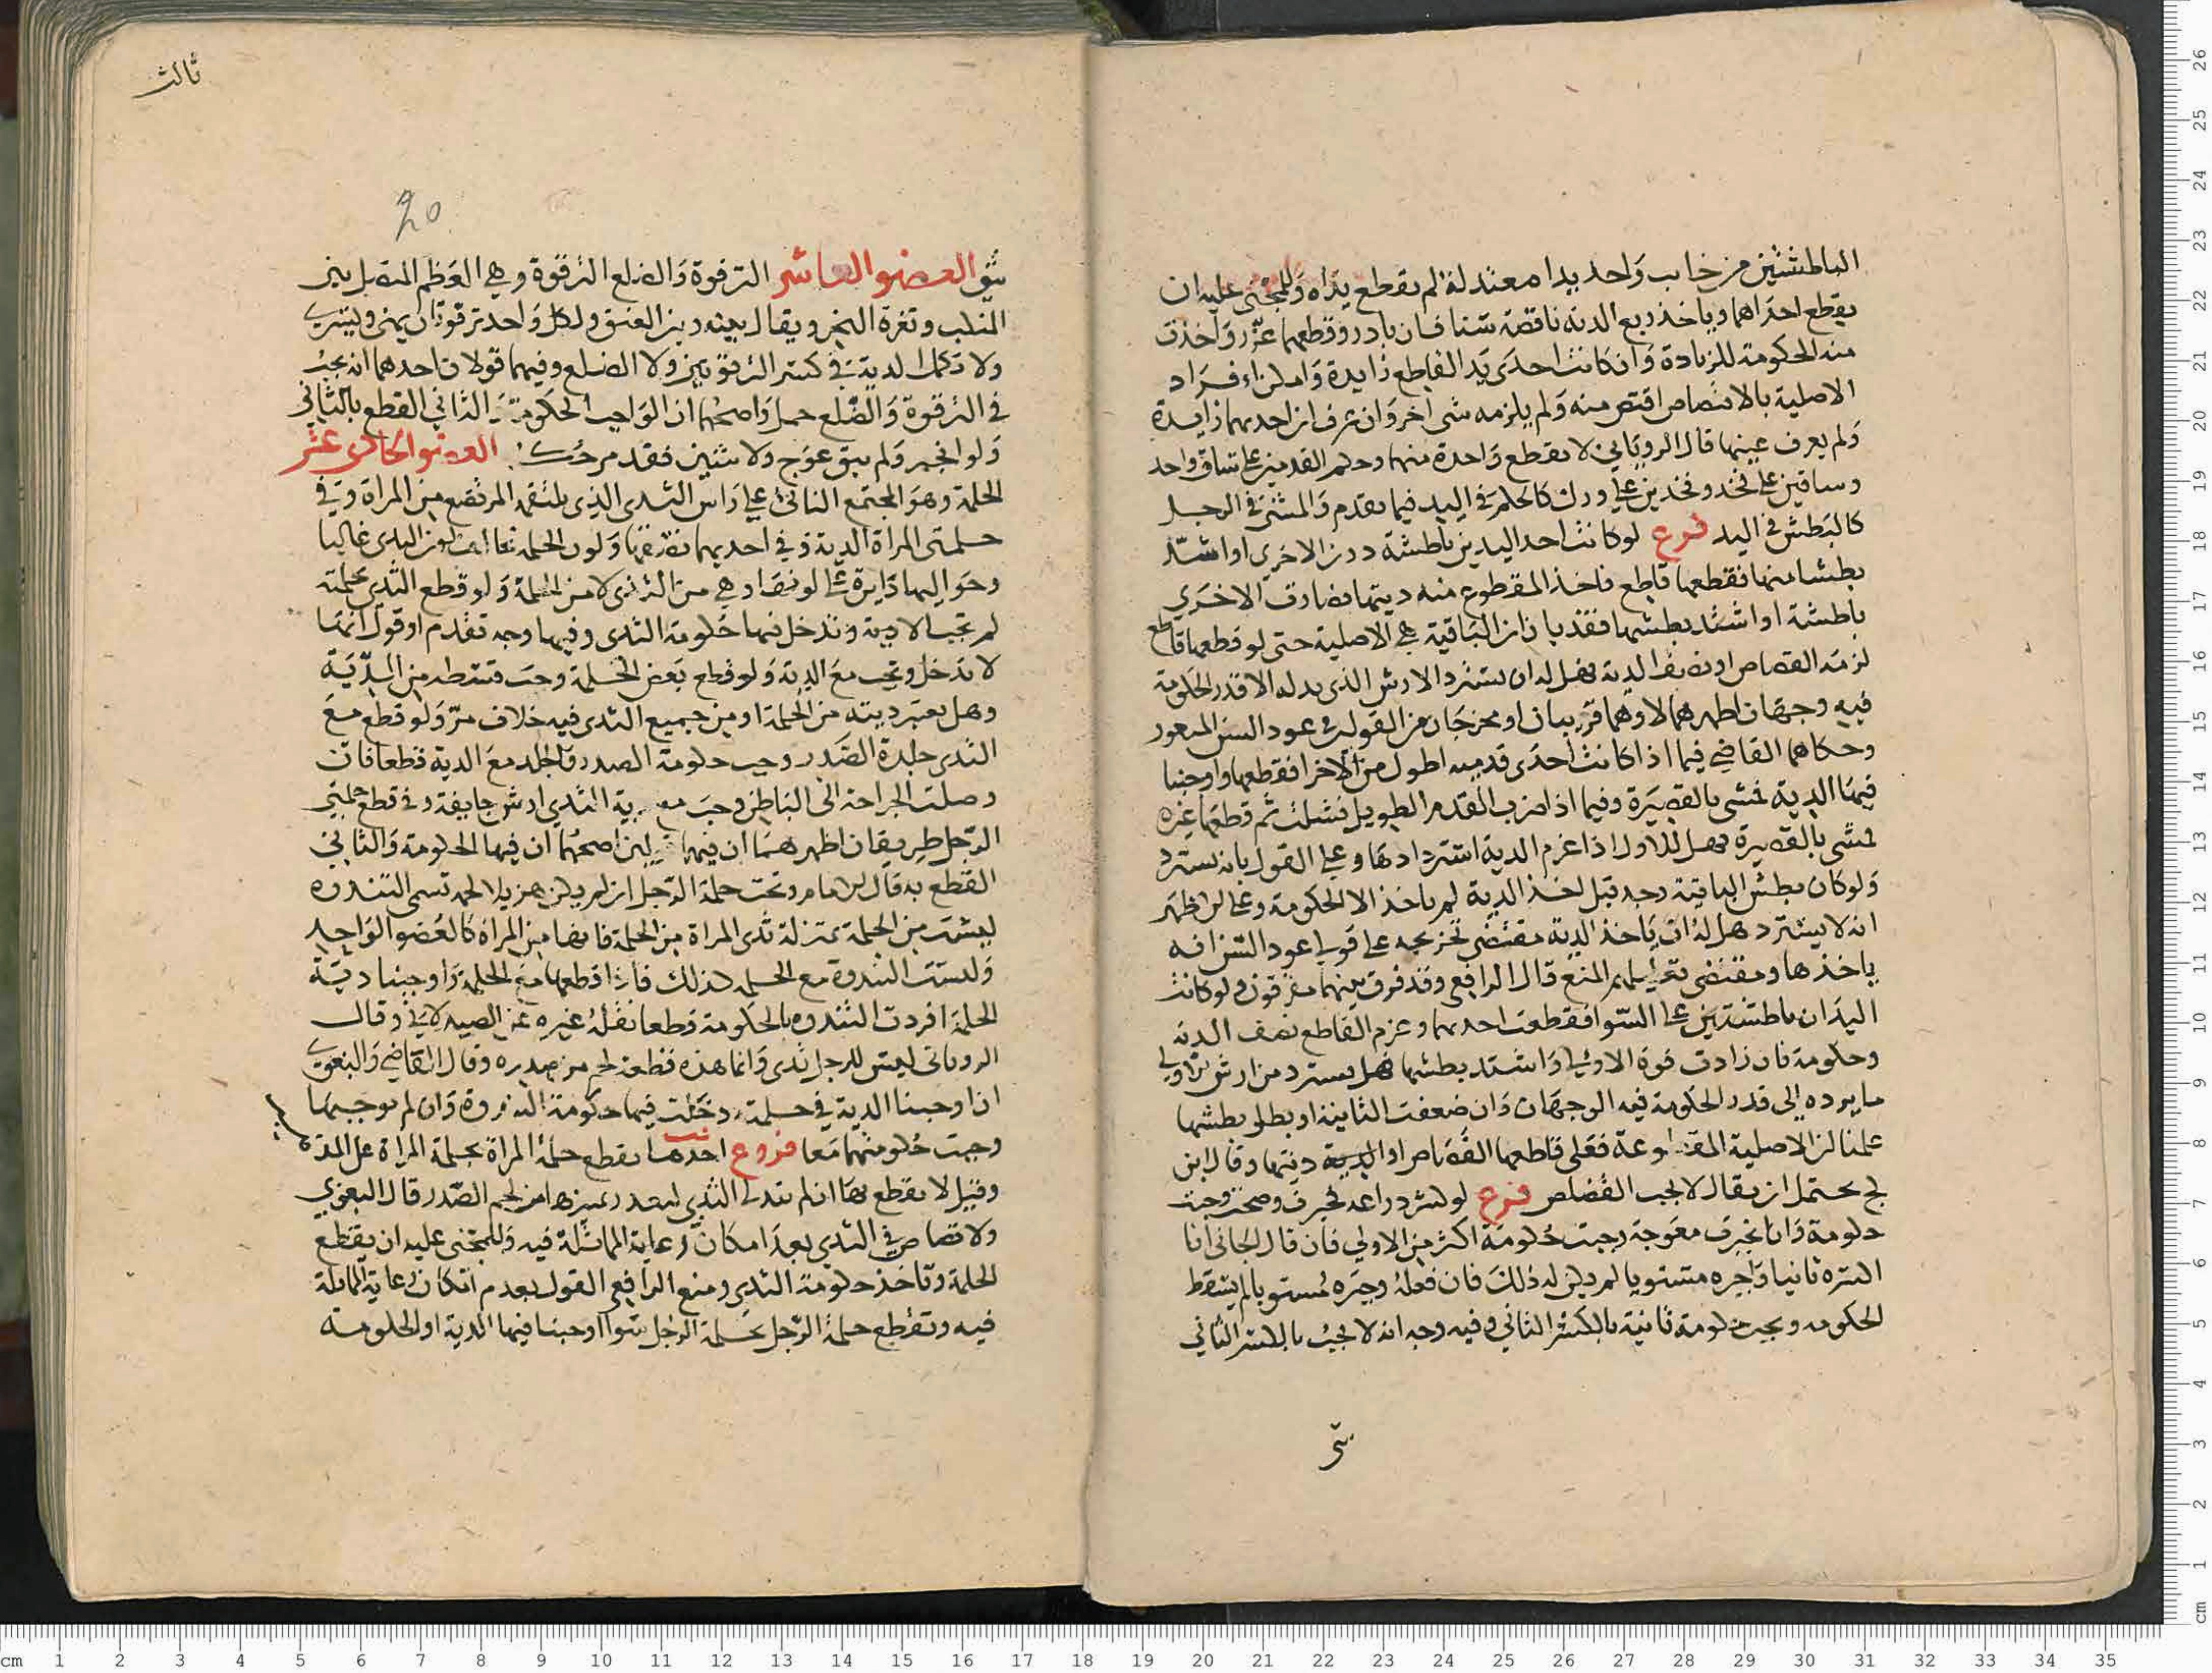 الباطشتين من جانب واحد يدا معتدلة لم تقطع يداه وللمجني عليه ان
يقطع احداهما وياخذ ربع الدية ناقصة شيا فان بادر وقطعهما عزر واخذت
منه الحكومة للزيادة وان كانت احدى يد القاطع زايدة وامكن افراد
الاصلية بالاقتصاص اقتص منه ولم يلزمه شي اخر وان عرف ان احديهما زايدة
ولم يعرف عينها قال الروياني لا تقطع واحدة منهما وحكم القدمين على ساق واحد
وساقين على فخذ وفخذين على ورك كالحكم في اليد فيما تقدم والمشي في الرجل
كالبطش في اليد فرع لو كانت احد اليدين باطشة دون الاخرى او اشد
بطشا منها فقطعها قاطع فاخذ المقطوع منه ديتها فصارت الاخرى
باطشة او اشتد بطشها فقد بان ان الباقية هي الاصلية حتى لو قطعها قاطع
لزمه القصاص او نصف الدية فهل له ان يسترد الارش الذي بدله الا قدر الحكومة
فيه وجهان اظهرهما لا وهما قريبان او مخرجان من القولين في عود السن المثغور
وحكاهما القاضي فيما اذا كانت احدى قدميه اطول من الاخر فقطعها واوجبنا
فيها الدية فمشى بالقصيرة وفيما اذا ضرب القدم الطويل فشلت ثم قطعها غيره
فمشى بالقصيرة فهل للاول اذا غرم الدية استردادها وعلى القول بانه يسترد
ولو كان بطش الباقية وجد قبل اخذ الدية لم ياخذ الا الحكومة وعلى الاظهر
انه لا يسترد هل له ان ياخذ الدية مقتضى تخريجه على قولي عود السن انه
ياخذها ومقتضى المنع قال الرافعي وقد فرق بينهما مفرقون ولو كانت
اليدان باطشتين على السوا فقطعت احديهما وغرم القاطع نصف الدية
وحكومة فان زادت قوة الاولى واشتد بطشها فهل يسترد من ارش الاولى
ما يرده الى قدر الحكومة فيه الوجهان وان ضعفت الثانية او بطل بطشها
علمنا ان الاصلية المقطوعة فعلى قاطعها القصاص او الدية ديتها وقال ابن
كج يحتمل ان يقال لا يجب القصاص فرع لو كسر ذراعه فجبرت وصحت وجبت
حكومة وان انجبرت معوجة وجبت حكومة اكثر من الاولى فان قال الجاني انا
اكسره ثانيا واجبره مستويا لم يكن له ذلك فان فعله وجبره مستويا لم يسقط
الحكومه ويجب حكومة ثانية بالكسر الثاني وفيه وجه انه لا يجب بالكسر الثاني
شي
ثالث
20
شي العضو العاشر الترقوة والضلع الترقوة وهي العظم المتصل بين
المنكب وثغرة النحر ويقال بينه وبين العنق ولكل واحد ترقوتان يمنى ويسرى
ولا تكمل الدية في كسر الترقوتين ولا الضلع وفيهما قولان احدهما انه يجب
في الترقوة والضلع جمل واصحهما ان الواجب الحكومة والثاني القطع بالثاني
ولو انجبر ولم يبق عوج ولا شين فقد مر حكمه العضو الحادي عشر
الحلمة وهو المجتمع الناتئ على راس الثدي الذي يلتقمه المرتضع من المراة وفي
حلمتي المراة الدية وفي احديهما نصفها ولون الحلمة يخالف لون الثدي غالبا
وحواليها دايرة على لونها وهي من الثدي لا من الحلمة ولو قطع الثدي بحلمته
لم تجب الا دية وتدخل فيها حكومة الثدي وفيها وجه تقدم او قول انها
لا تدخل وتجب مع الدية ولو قطع بعض الحلمة وجب قسطه من الدية
وهل يعتبر ديته من الحلمة او من جميع الثدي فيه خلاف مر ولو قطع مع
الثدي جلدة الصدر وجب حكومة الصدر والجلد مع الدية قطعا فان
وصلت الجراحة الى الباطن وجب مع دية الثدي ارش جايفة وفي قطع حلمتي
الرجل طريقان اظهرهما ان فيها قولين اصحهما ان فيها الحكومة والثاني
القطع به قال الامام وتحت حلمة الرجل ان لم يكن هزيلا لحمة تسمى الثندوه
ليست من الحلمة بمنزلة ثدي المراة من الحلمة فانهما من المراة كالعضو الواحد
وليست الثندوة مع الحلمة كذلك فاذا قطعها مع الحلمة واوجبنا دية
الحلمة افردت الثندوه بالحكومة قطعا نقله غيره عن الصيدلاني وقال
الروياني ليس للرجل ثدي وانما هذه قطعة لحم من صدره وقال القاضي والبغوي
ان اوجبنا الدية في حلمته دخلت فيها حكومة الثندوة وان لم نوجبها
وجبت حكومتهما معا فروع احدها تقطع حلمة المراة بحلمة المراة على المذهب
وقيل لا يقطع بها ان لم يتدل الثدي لبعد تمييزها من لحم الصدر قال البغوي
ولا قصاص في الثدي بعد امكان رعاية المماثلة فيه وللمجني عليه ان يقطع
الحلمة وتاخذ حكومة الثدي ومنع الرافعي القول بعدم امكان رعاية المماثلة
فيه وتقطع حلمة الرجل بحلمة الرجل سوا اوجبنا فيها الدية او الحكومة